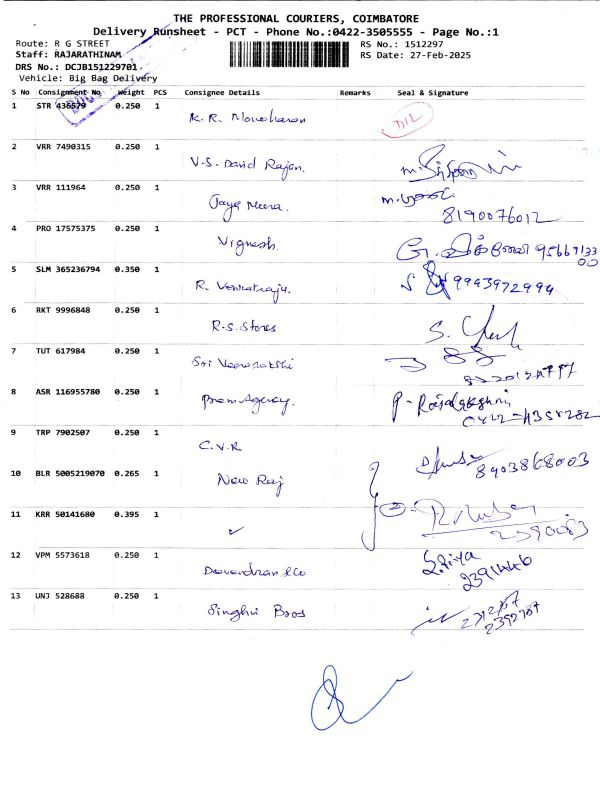 THE PROFESSIONAL COURIERS, COIMBATORE
Delivery Runsheet - PCT - Phone No.:0422-3505555 - Page No.:1
Route: R G STREET RS No.: 1512297
Staff: RAJARATHINAM RS Date: 27-Feb-2025
DRS No.: DCJB151229701.
Vehicle: Big Bag Delivery
S No Consignment No Weight PCS Consignee Details Remarks Seal & Signature
1 STR 436579 0.250 1 K.R. Manoharan D/L
2 VRR 7490315 0.250 1 V.S. David Rajan.
3 VRR 111964 0.250 1 Jaya Meera. 8190076012
4 PRO 17575375 0.250 1 Vignesh.
5 SLM 365236794 0.350 1 R. Venkatraju. 9943972994
6 RKT 9996848 0.250 1 R.S. Stores
7 TUT 617984 0.250 1 Sri
8 ASR 116955780 0.250 1 Prem Agency. P. Rajalakshmi
9 TRP 7902507 0.250 1 C.V.R. 8903868003
10 BLR 5005219070 0.265 1 New Raj
11 KRR 50141680 0.395 1 ✓ 2390083
12 VPM 5573618 0.250 1 Devendran & Co
13 UNJ 528688 0.250 1 Singhvi Bros